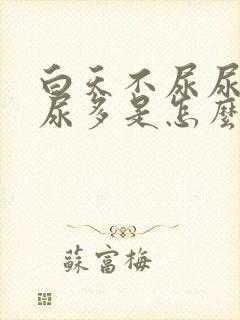 白天不尿尿
尿多是怎麼
蘇富梅